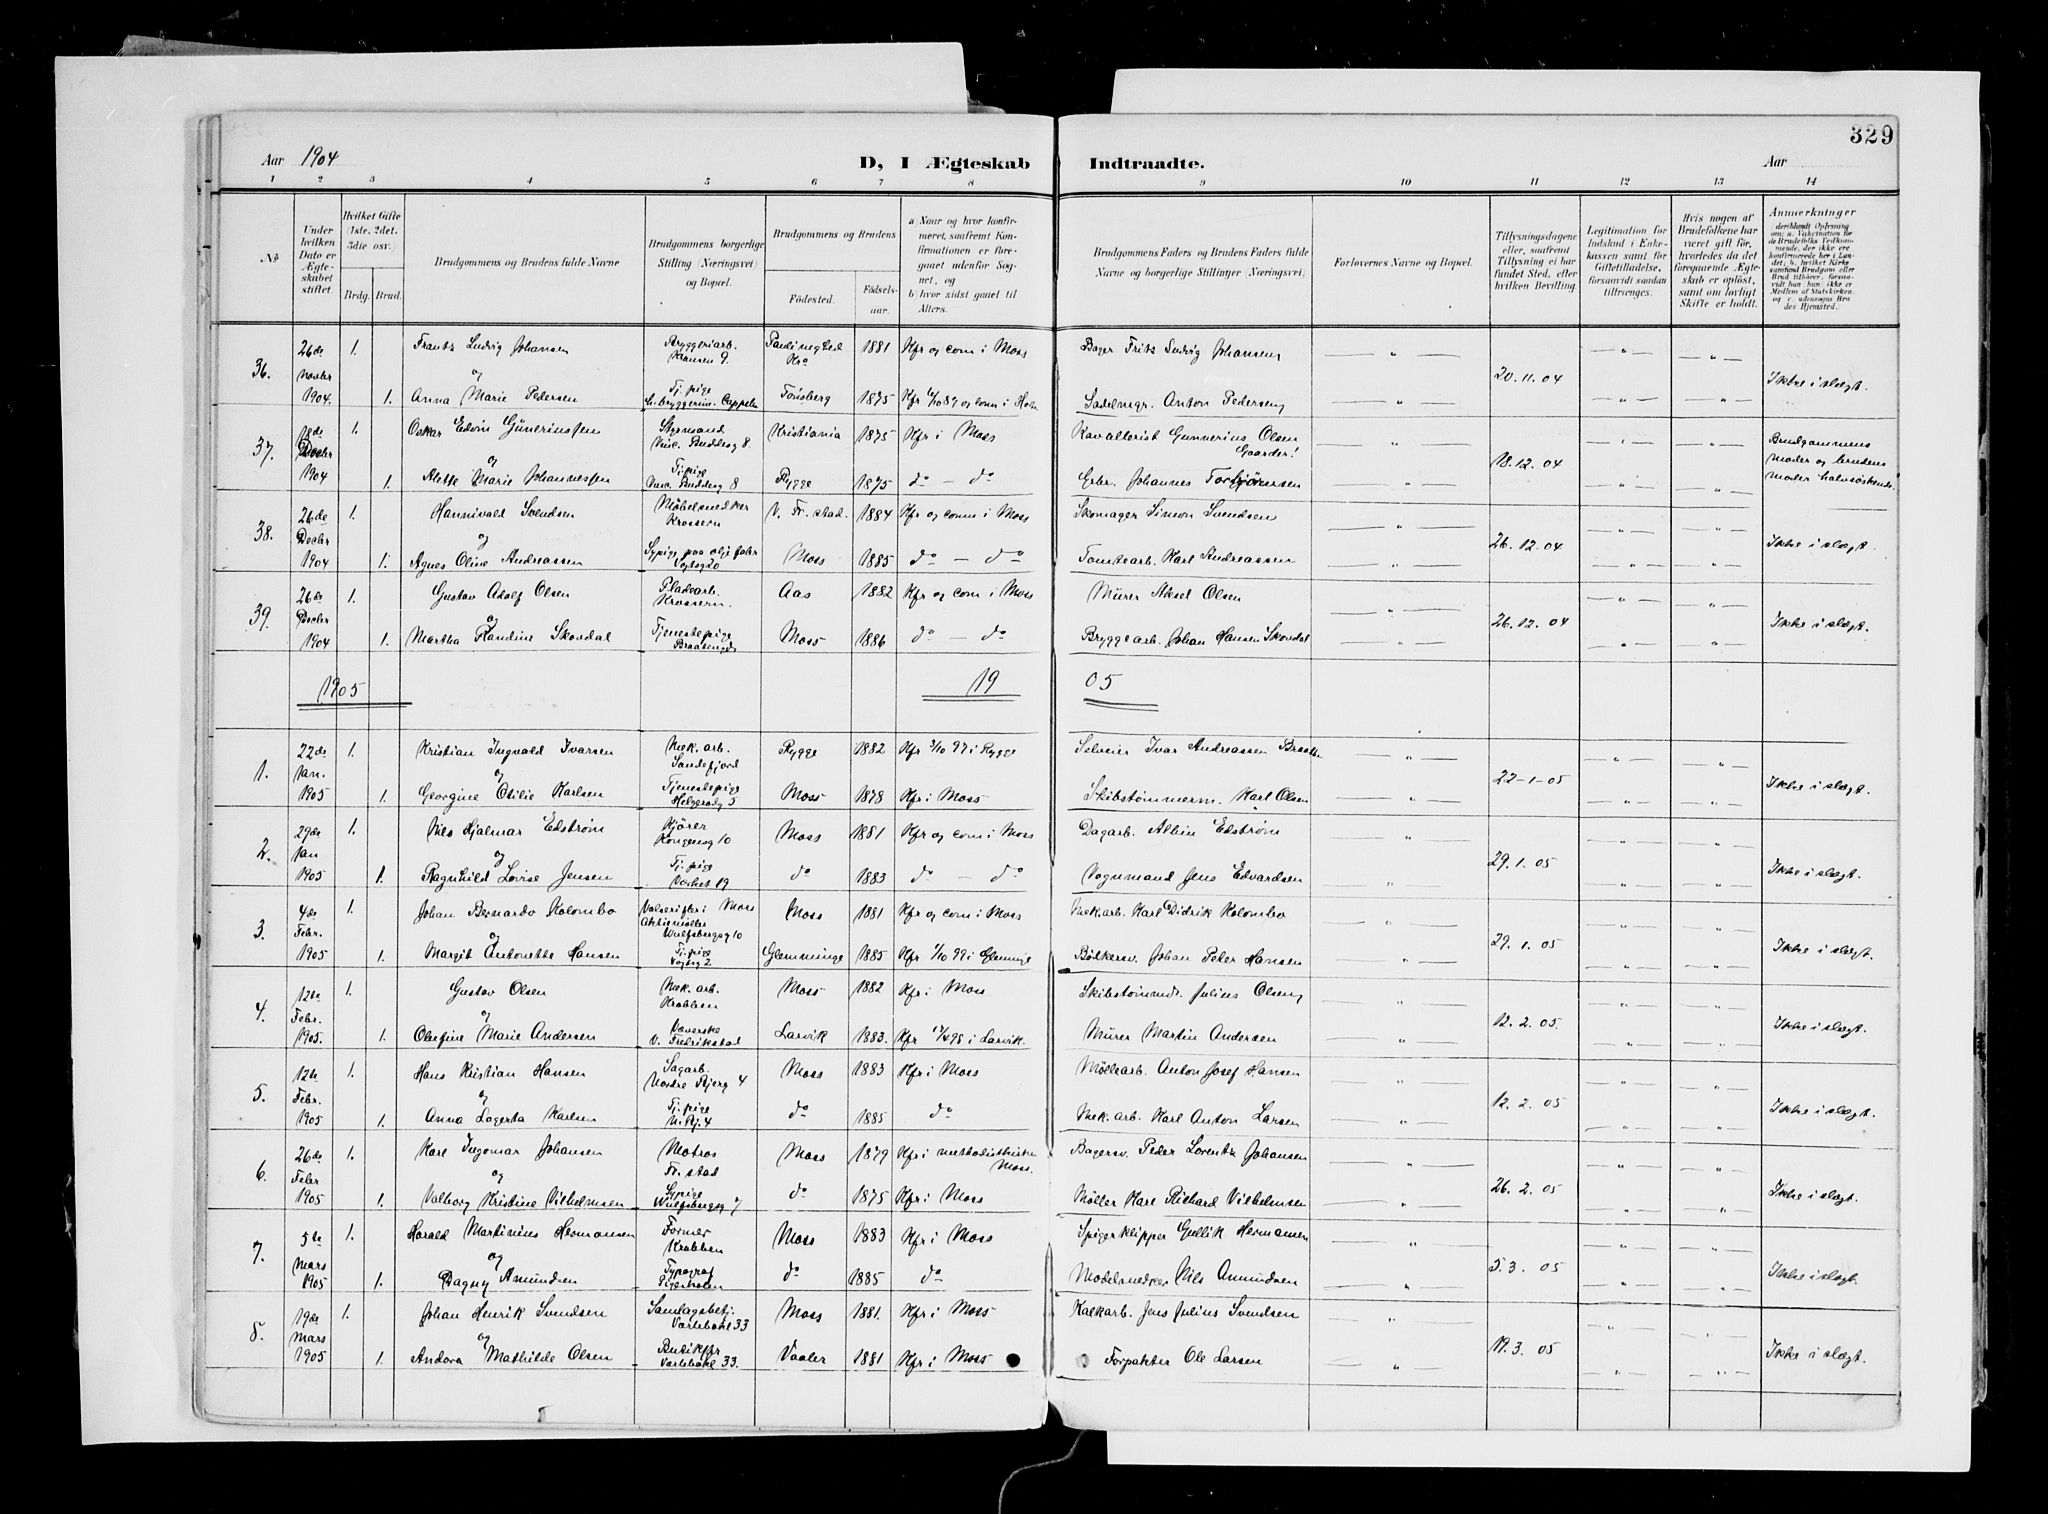 Aar 1904
D, I Ægteskab Indtraadte.
Aar
329
1 2 3 4 5 6 7 8 9 10 11 12 13 14
№
Under hvilken Dato er Ægteskabet stiftet.
Hvilket Gifte (1ste, 2det, 3die osv.)
Brdg. Brud.
Brudgommens og Brudens fulde Navne
Brudgommens borgerlige Stilling (Næringsvei) og Bopæl.
Brudgommens og Brudens
Fødested. Fødselsaar.
a Naar og hvor konfirmeret, saafremt Konfirmationen er foregaaet udenfor Sognet, og
b) hvor sidst gaaet til Alters.
Brudgommens Faders og Brudens Faders fulde Navne og borgerlige Stillinger (Næringsvei)
Forlovernes Navne og Bopæl.
Tillysningsdagene eller, saafremt Tillysning ei har fundet Sted, efter hvilken Bevilling.
Legitimation for Indskud i Enkekassen samt for Giftetilladelse, forsaavidt saadan tiltrænges.
Hvis nogen af Brudefolkene har været gift før, hvorledes da det foregaaende Ægteskab er opløst, samt om lovligt Skifte er holdt.
Anmerkninger
36. 26de Novbr 1904. 1. Frantz Ludvig Johansen Bryggeriarb. Kransen 9 Paulinegted Kra 1881 Kfr og com i Moss Bager Fritz Ludvig Johansen — " — — " — — " —
og 20.11.04
1. Anna Marie Pedersen Tj. pige Tønsberg 1875 Kfr 1/10 89 og com i Hor. Sadelmgr. Anton Pedersen — " — — " — — " — Ikke i slægt.
37. 18de Decbr 1904 1. Oskar Edvin Günerinssen Styrmand Vinc. Buddesg 8 Kristiania 1875 Kfr i Moss Kavallerist Gunnerius Olsen Gaarder! — " — — " — — " — Brudgommens
og 18.12.04 Moder og brudens
1. Alette Marie Johannessen Tj. pige Vinc. Buddesg 8 Rygge 1875 do — do Grbr. Johannes Torbjørnsen — " — — " — — " — Moder halvsøskende.
38. 26de Decbr 1904 1. Hannivald Svendsen Møbelsnedker Krossern V. Fr. stad. 1884 Kfr og com i Moss Skomager Simon Svendsen — " — — " — — " —
og 26.12.04 Ikke i slægt.
1. Agnes Oline Andreassen Sypige paa oljefabr Vogtsg 20 Moss 1885 do — do Tomtearb. Karl Andreassen — " — — " — — " —
39. 26de Decbr 1904 1. Gustav Adolf Olsen Pladearb. Krossern. Aas 1882 Kfr og com i Moss Murer Aksel Olsen — " — — " — — " —
og 26.12.04 Ikke i slægt.
1. Martha Randine Skovdal Tjenestepige Braatengd Moss 1886 do — do Bryggearb. Johan Hansen Skovdal — " — — " — — " —
1905 19 05
1. 22de Jan. 1905 1. Kristian Ingvald Ivarsen Mek. arb. Sandefjord Rygge 1882 Kfr 3/10 97 i Rygge Selveier Ivar Andreassen — " — — " — — " —
og 22-1-05 Ikke i slægt.
1. Georgine Otilie Karlsen Tjenestepige Helgerødg 5 Moss 1878 Kfr i Moss Skibstømmerm. Karl Olsen — " — — " — — " —
2. 29de Jan 1905 1. Nils Hjalmar Edstrøm Kjører Kongensg 10 Moss 1881 Kfr og com i Moss Dagarb. Albin Edstrøm — " — — " — — " —
og 29.1.05
1. Ragnhild Lovise Jensen Tj. pige Værket 19 do 1883 do — do Vognmand Jens Edvardsen — " — — " — — " — Ikke i slægt.
3. 4de Febr. 1905 1. Johan Bernardo Kolombo Valserifler i Moss Aktiemøller Wulfsbergsg 10 Moss 1881 Kfr og com i Moss Mek.arb. Karl Didrik Kolombo — " — — " — — " —
og 29.1.05 Ikke i slægt.
1. Margit Antonette Hansen Tj. pige Vogtsg 2 Glemminge 1885 Kfr 1/10 99 i Glemmige Bødkersv. Johan Peter Hansen — " — — " — — " —
4. 12te Febr. 1905. 1. Gustav Olsen Mek. arb. Krabben Moss 1882 Kfr i Moss Skibstømmdr. Julius Olsen — " — — " — — " —
og 12.2.05. Ikke i slægt.
1. Olufine Marie Andersen Væverske V. Fredrikstad Larvik 1883. Kfr 17/4 98 i Larvik. Murer Martin Andersen — " — — " — — " —
5. 12te Febr. 1905 1. Hans Kristian Hansen Sagarb. Nordre Bjerg 4 Moss 1883 Kfr i Moss Møllearb. Anton Josef Hansen — " — — " — — " —
og 12.2.05 Ikke i slægt.
1. Anna Lagerta Karlsen Tj. pige N. Bj. 4 do 1885 do Mek. arb. Karl Anton Larsen — " — — " — — " —
6. 26de Febr 1905 1. Karl Ingomar Johansen Matros Fr. stad Moss 1879 Kfr i methodistkirken Moss. Bagersv. Peder Lorentz Johansen — " — — " — — " —
og 26.2.05
1. Valborg Kristine Vilhelmsen Sypige Wulfsbergsg 7 do 1875 Kfr i Moss Møller Karl Richard Vilhelmsen — " — — " — — " — Ikke i slægt.
7. 5te Mars 1905 1. Harald Martinius Hermansen Former Krabben Moss 1883 Kfr i Moss Spigerklipper Gullik Hermansen — " — — " — — " —
og 5.3.05
1. Dagny Amundsen Typograf do 1885 do Møbelsnedker Nils Amundsen — " — — " — — " — Ikke i slægt.
8. 19de Mars 1905 1. Johan Henrik Svendsen Varlebakl 33 Moss 1881. Kfr i Moss Kalkarb. Jens Julius Svendsen — " — — " — — " —
og 19.3.05
1. Andora Mathilde Olsen Butikfr Varlebakl 33. Vaaler 1881 Kfr i Moss Forpakter Ole Larsen — " — — " — — " — Ikke i slægt.